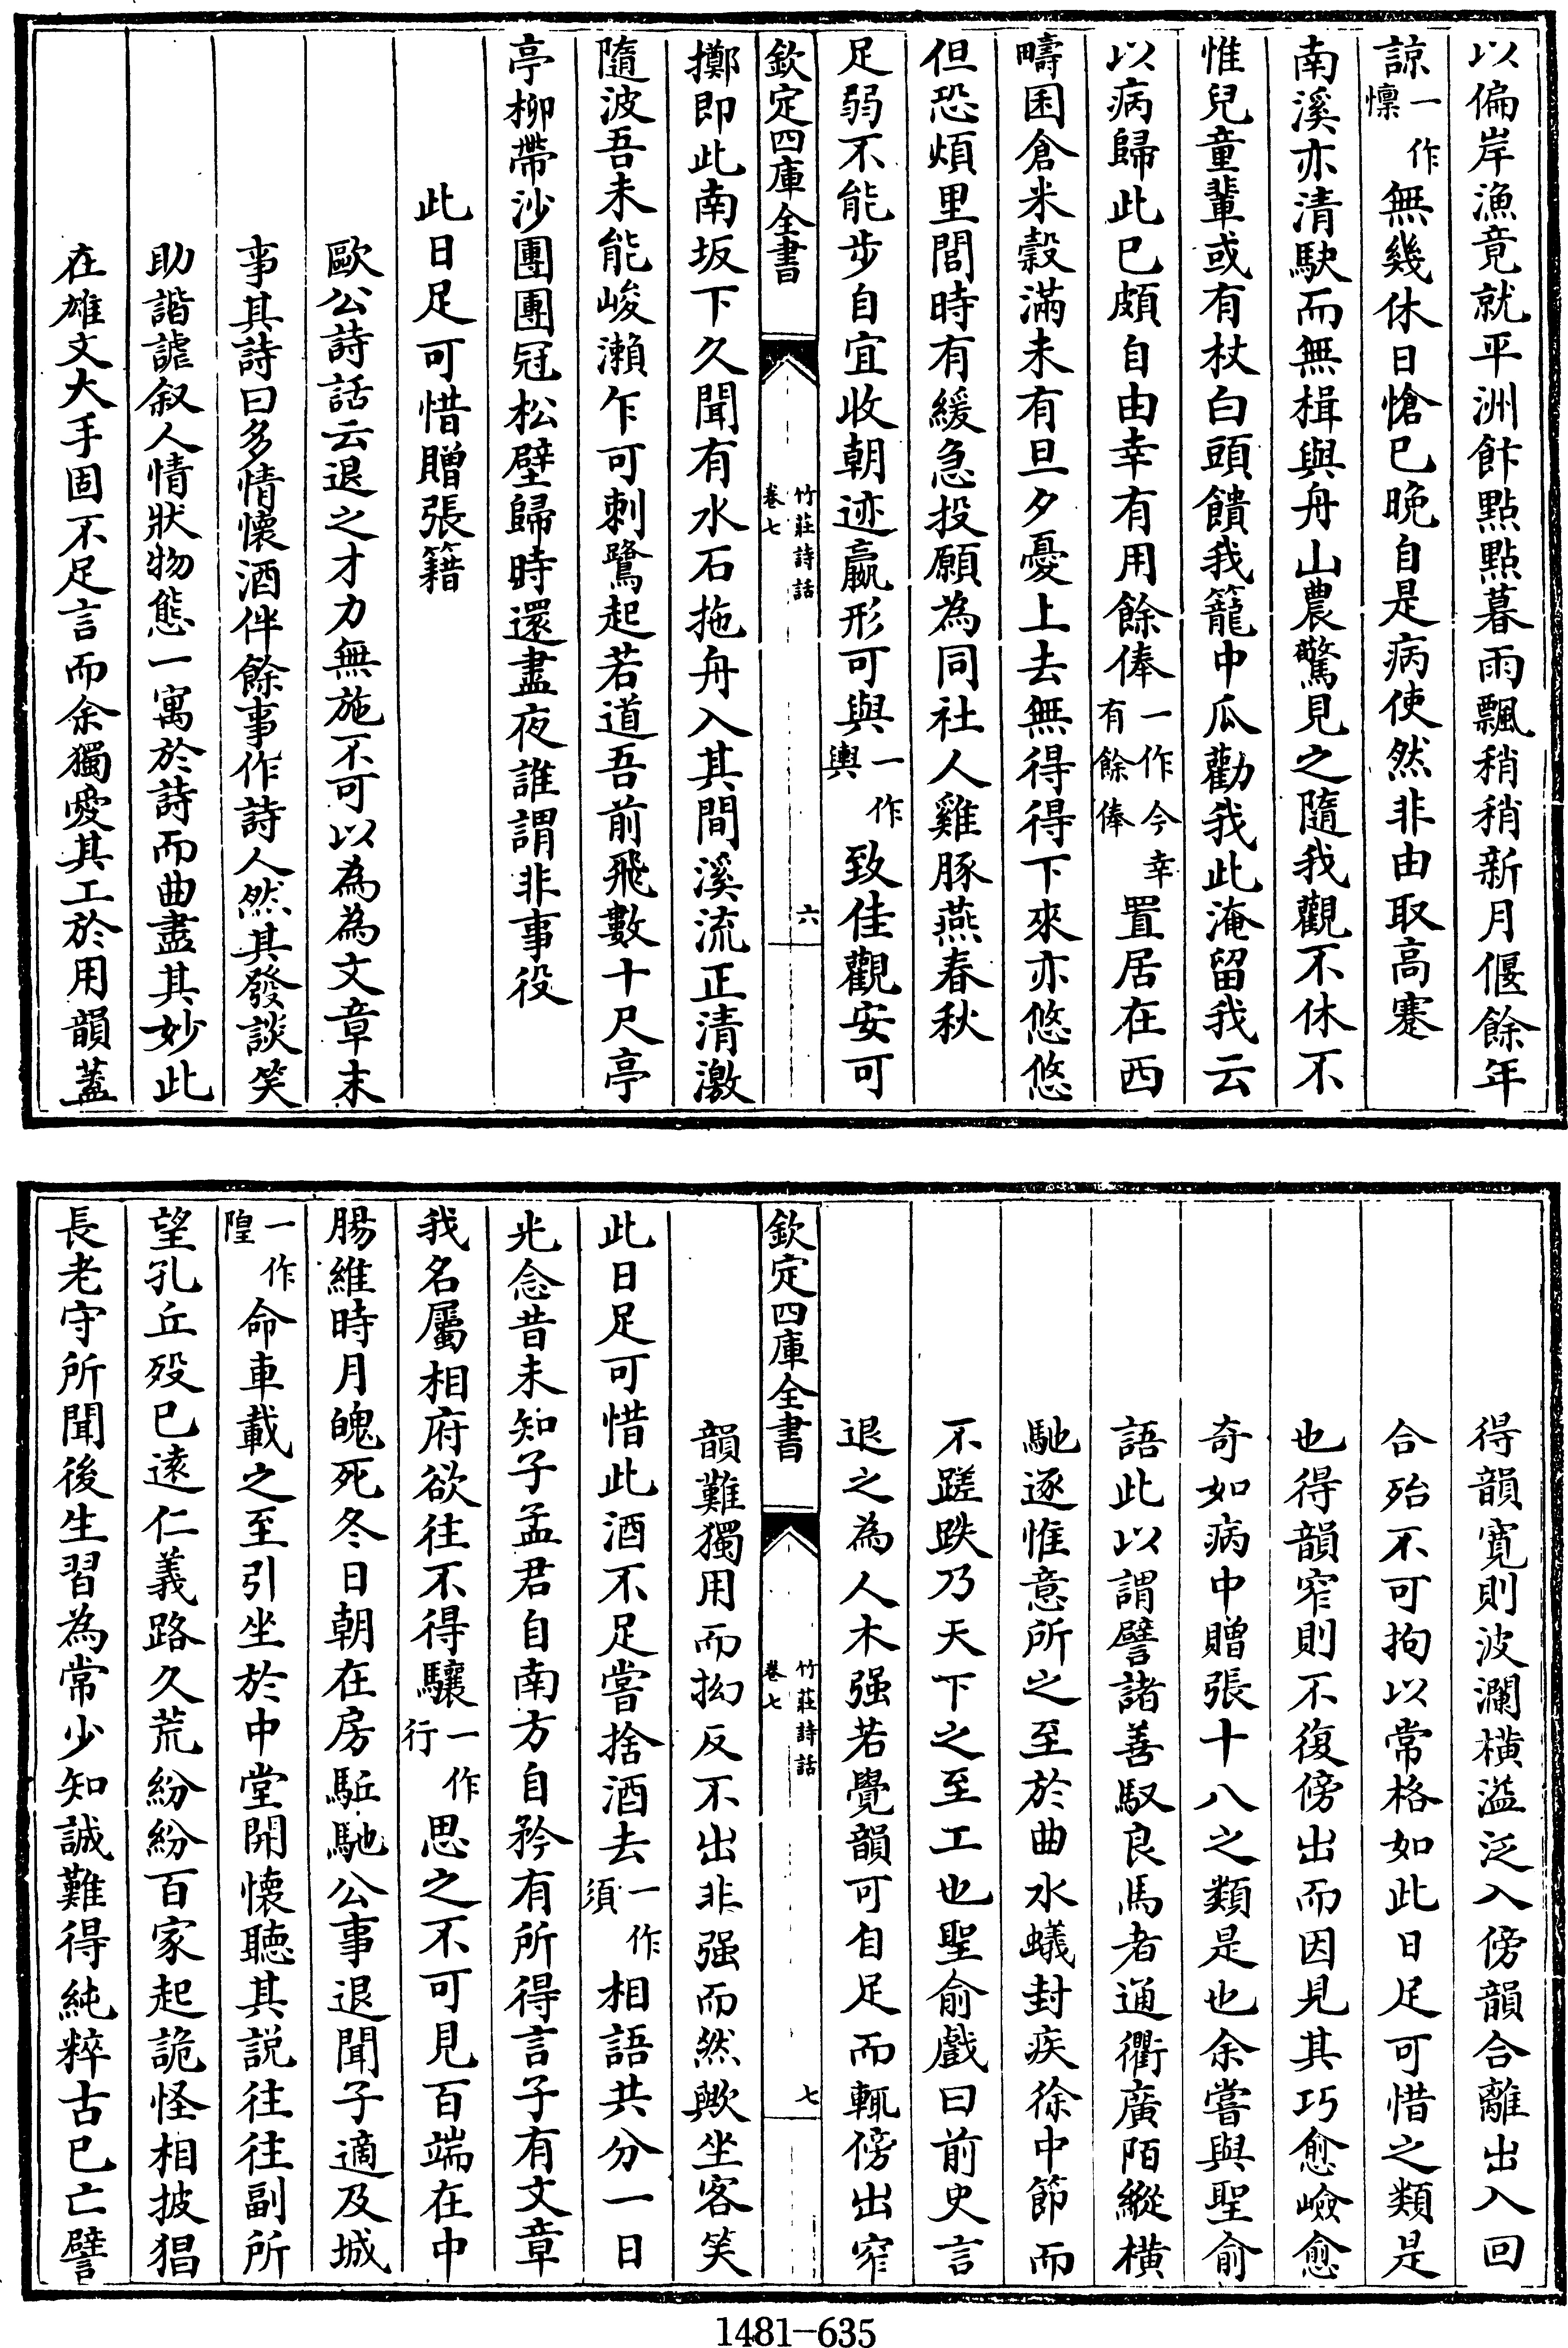 以偏岸漁竟就平洲飰點點暮雨飄稍稍新月偃餘年
諒一作懍無幾休日愴已晚自是病使然非由取高蹇
南溪亦清駃而無楫與舟山農驚見之隨我觀不休不
惟兒童輩或有杖白頭饋我籠中瓜勸我此淹留我云
以病歸此已頗自由幸有用餘俸一作今幸有餘俸置居在西
疇囷倉米穀滿未有旦夕憂上去無得得下來亦悠悠
但恐煩里閭時有緩急投願為同社人雞豚燕春秋
足弱不能步自宜收朝迹羸形可與一作輿致佳觀安可
欽定四庫全書
竹莊詩話
卷七
六
擲即此南坂下久聞有水石拖舟入其間溪流正清激
隨波吾未能峻瀨乍可刺鷺起若道吾前飛數十尺亭
亭柳帶沙團團冠松壁歸時還盡夜誰謂非事役
此日足可惜贈張籍
歐公詩話云退之才力無施不可以為為文章末
事其詩曰多情懷酒伴餘事作詩人然其發談笑
助諧謔叙人情狀物態一寓於詩而曲盡其妙此
在雄文大手固不足言而余獨愛其工於用韻葢
得韻寬則波瀾橫溢泛入傍韻合離出入回
合殆不可拘以常格如此日足可惜之類是
也得韻窄則不復傍出而因見其巧愈嶮愈
奇如病中贈張十八之類是也余嘗與聖俞
語此以謂譬諸善馭良馬者通衢廣陌縱橫
馳逐惟意所之至於曲水蟻封疾徐中節而
不蹉跌乃天下之至工也聖俞戲曰前史言
退之為人木强若覺韻可自足而輒傍出窄
欽定四庫全書
竹莊詩話
卷七
七
韻難獨用而拗反不出非强而然歟坐客笑
此日足可惜此酒不足嘗捨酒去一作須相語共分一日
光念昔未知子孟君自南方自矜有所得言子有文章
我名屬相府欲往不得驤一作行思之不可見百端在中
腸維時月魄死冬日朝在房駈馳公事退聞子適及城
一作隍命車載之至引坐於中堂開懷聽其說往往副所
望孔丘歿已遠仁義路久荒紛紛百家起詭怪相披猖
長老守所聞後生習為常少知誠難得純粹古已亡譬
1481—635